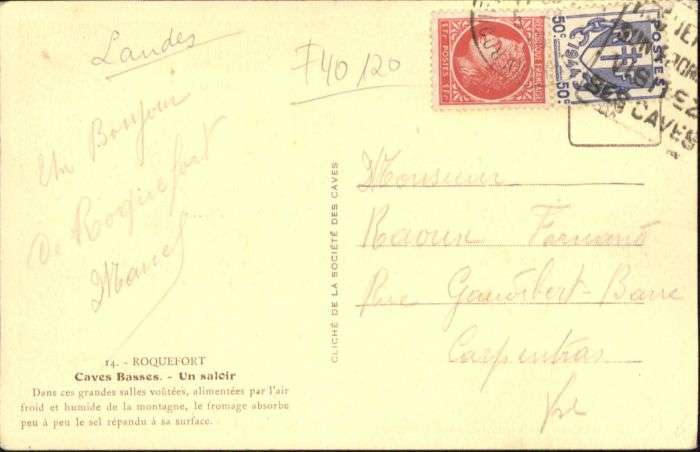 Landes
F40 120
Un Bonjour
de Roquefort
Marcel
14. - ROQUEFORT
Caves Basses. - Un saloir
Dans ces grandes salles voûtées, alimentées par l'air
froid et humide de la montagne, le fromage absorbe
peu à peu le sel répandu à sa surface.
CLICHÉ DE LA SOCIÉTÉ DES CAVES
1F. POSTES 1F.
RÉPUBLIQUE FRANÇAISE
50c 1944 50c
POSTES
SES CAVES
Monsieur
Raoux Fernand
Rue Gaudibert-Barre
Carpentras
Vse